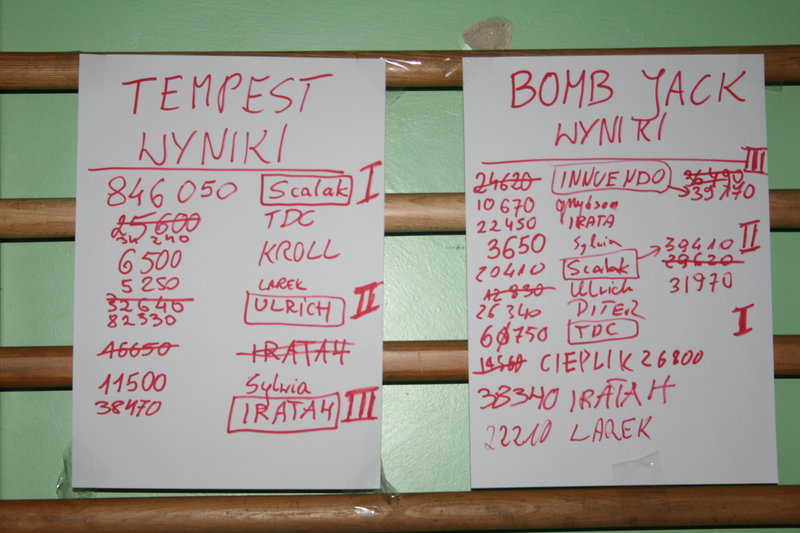 TEMPEST
WYNIKI
846050 Scalak I
25600 TDC
34 240
6500 KROLL
5250 LAREK
32640 ULRICH II
82330
46650 IRATA4
11500 Sylwia
38470 IRATA4 III
BOMB JACK
WYNIKI
III
24620 INNUENDO 36490
39170
10670
22450 IRATA
3650 Sylwia 39410 II
20410 Scalak 29620
12830 Ulrich 31970
26340 DITER
60750 TDC I
CIEPLIK 26800
38340 IRATA4
22210 LAREK